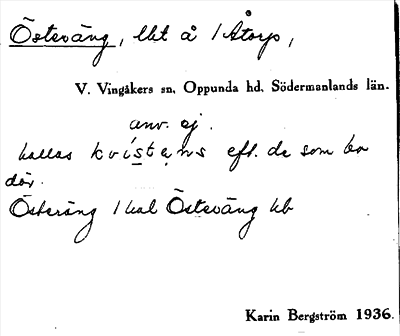 Östeväng, lht å 1 Åtorp,
V. Vingåkers sn, Oppunda hd, Södermanlands län.
anv. ej.
kallas kvístạns eft. de som bo
där.
Österäng 1 hal Östeväng hb
Karin Bergström 1936.